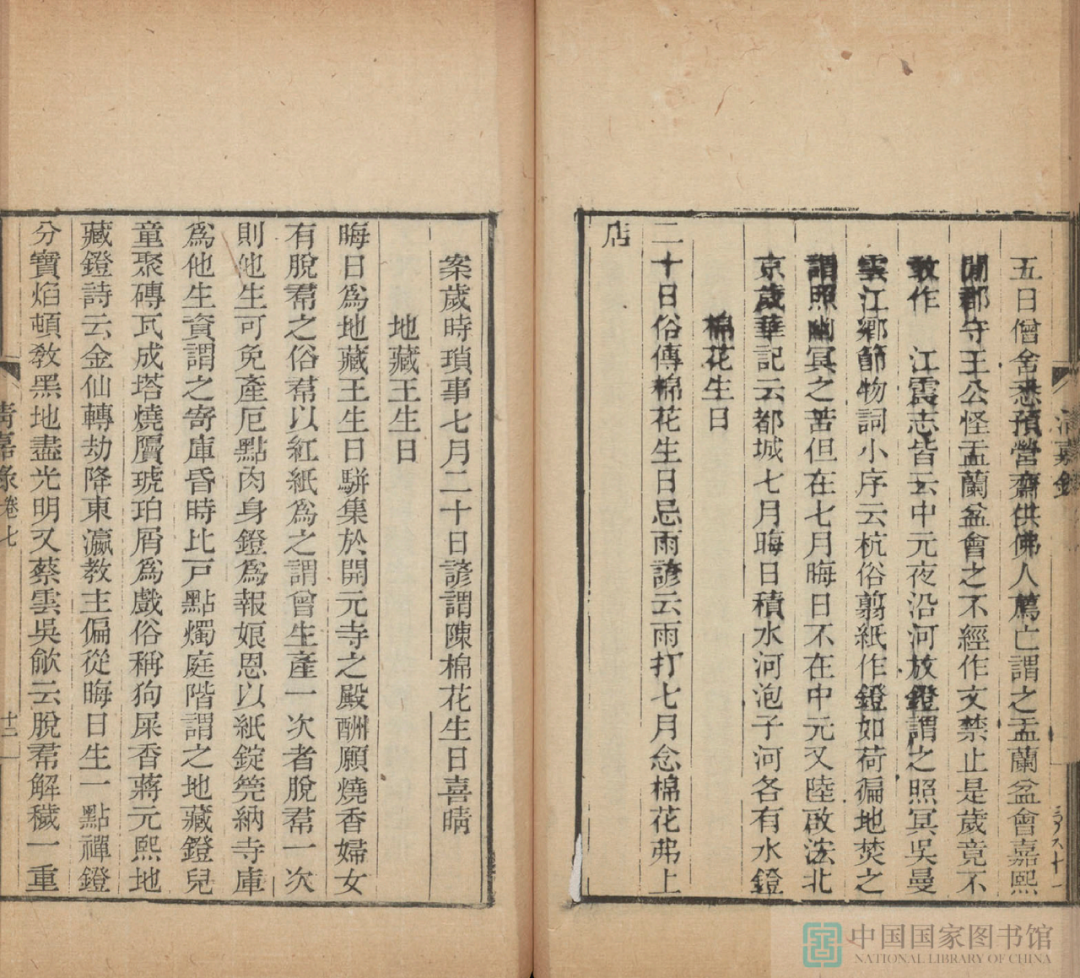 五日僧舍悉預營齋供佛人薦亡謂之盂蘭盆會嘉熙
間郡守王公怪盂蘭盆會之不經作文禁止是歲竟不
敢作　江震志皆云中元夜沿河放鐙謂之照冥吳曼
雲江鄉節物詞小序云杭俗翦紙作鐙如荷徧地焚之
謂照幽冥之苦但在七月晦日不在中元又陸啟浤北
京歲華記云都城七月晦日積水河泡子河各有水鐙
棉花生日
二十日俗傳棉花生日忌雨諺云雨打七月念棉花弗上
店
案歲時瑣事七月二十日諺謂陳棉花生日喜晴
地藏王生日
晦日爲地藏王生日駢集於開元寺之殿酬願燒香婦女
有脫裙之俗裙以紅紙爲之謂曾生產一次者脫裙一次
則他生可免產厄點肉身鐙爲報娘恩以紙錠筦納寺庫
爲他生資謂之寄庫昏時比戶點燭庭階謂之地藏鐙兒
童聚磚瓦成塔燒贗琥珀屑爲戲俗稱狗屎香蔣元熙地
藏鐙詩云金仙轉劫降東瀛教主偏從晦日生一點禪鐙
分寶焰頓教黑地盡光明又蔡雲吳歈云脫裙解穢一重
清嘉錄
清嘉錄 卷七
十二
中国国家图书馆
NATIONAL LIBRARY OF CHINA